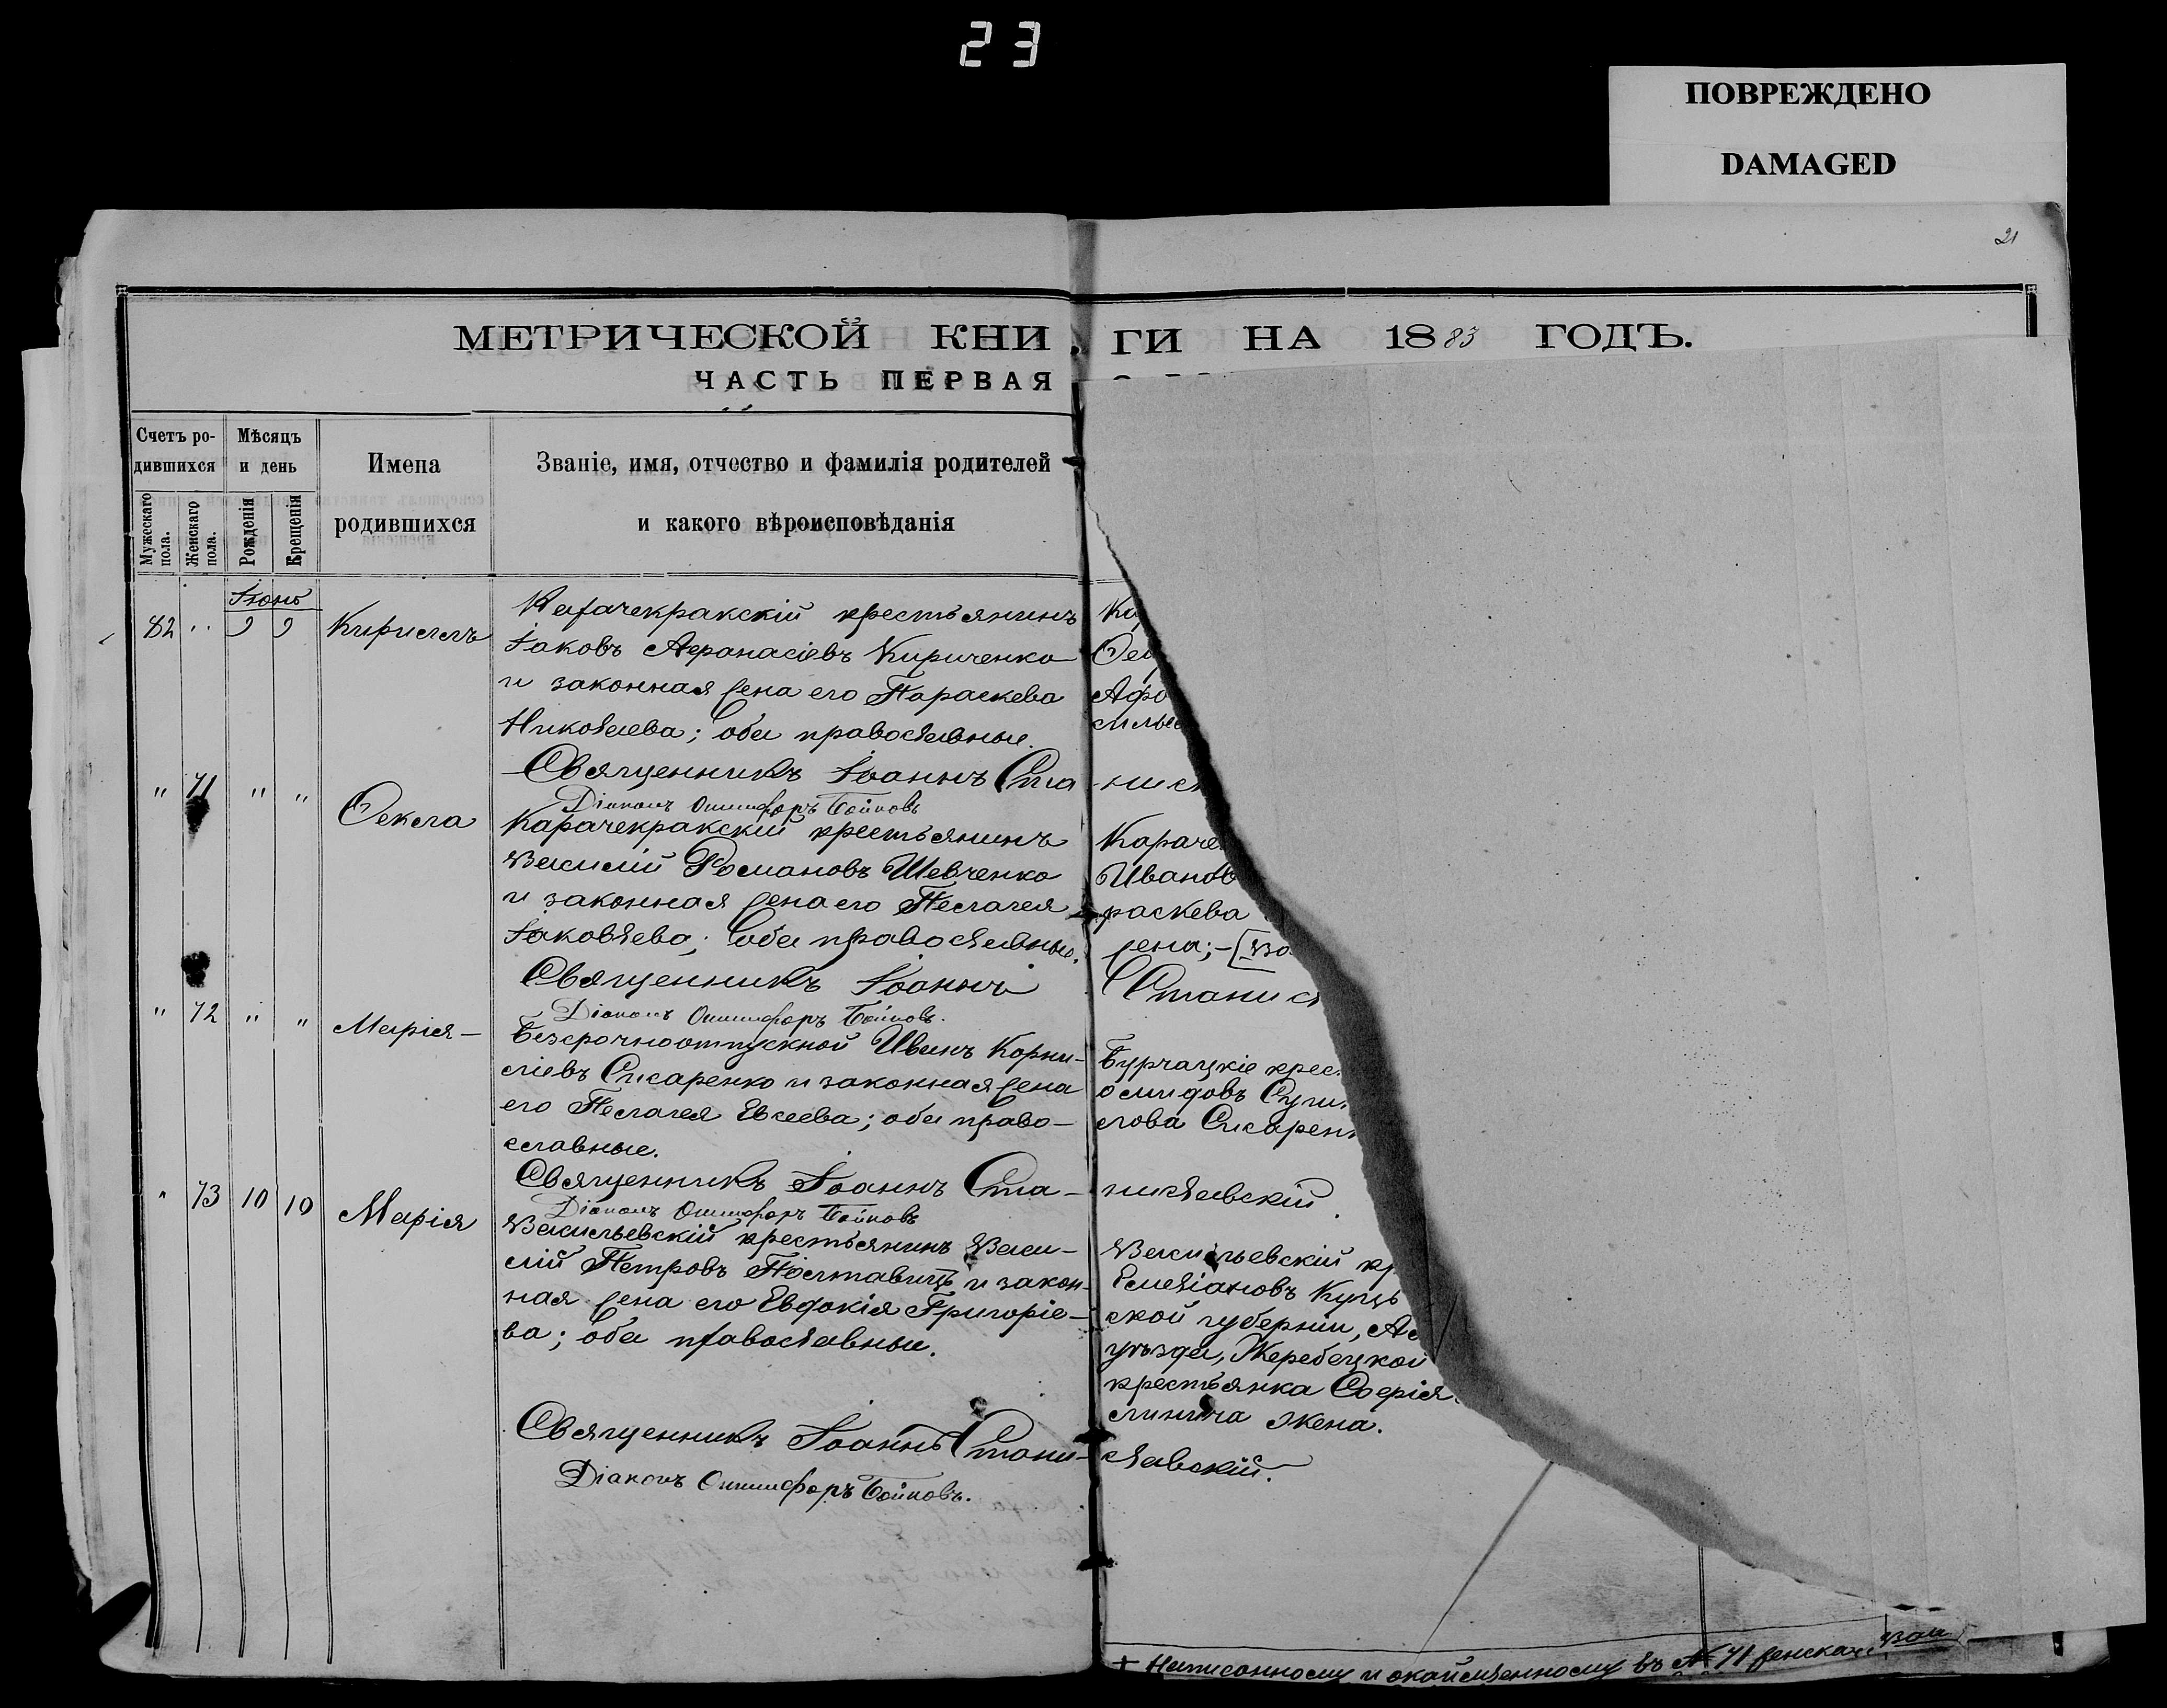 23
ПОВРЕЖДЕНО
DAMAGED
21
МЕТРИЧЕСКОЙ КНИГИ НА 1883 ГОДЪ.
ЧАСТЬ ПЕРВАЯ
Счетъ ро-
дившихся
Мужескаго пола.
Женскаго пола.
Мѣсяцъ
и день
Рожденія
Крещенія
Имена
родившихся
Званіе, имя, отчество и фамилія родителей
и какого вѣроисповѣданія
Іюнь
82 " 9 9 Кириллъ
Карачекракскій крестьянинъ
Іаковъ Аѳанасіевъ Кириченко
и законная жена его Параскева
Николаева; оба православные.
Священникъ Іоаннъ Ста
Діаконъ Онисифоръ Бойковъ
" 71 " " Ѳекла
Карачекракскій крестьянинъ
Василій Романовъ Шевченко
и законная жена его Пелагея
Іаковлева; оба православные.
Священникъ Іоаннъ
Діаконъ Онисифоръ Бойковъ.
" 72 " " Марія –
Безсрочноотпускной Иванъ Корни-
ліевъ Слисаренко и законная жена
его Пелагея Евсеева; оба право-
славные.
Священникъ Іоаннъ Ста-
Діаконъ Онисифоръ Бойковъ
" 73 10 10 Марія
Васильевскій крестьянинъ Васи-
лій Петровъ Полтавецъ и закон-
ная жена его Евдокія Григоріе-
ва; оба православные.
Священникъ Іоаннъ Стани-
Діаконъ Онисифоръ Бойковъ.
Ка
Ѳео
Афа
сильe
нисл
Караче
Иванов
раскева
жена; – [Во
Станисл
Бурчацкіе крес
лова Слисарен
ниславскій.
Васильевскій кр
Емеліановъ Куць
ской губерніи, Ал
уѣзда, Жеребецкой
крестьянка Софія
жена.
славскій.
+ Написанному и окаймленному въ № 71 женска